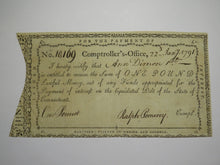 FOR THE PAYMENT OF
No. 10169 Comptroller's-Office, 22 Nov 1791
I hereby certify that Ann Dimon
is entitled to receive the Sum of ONE POUND
Lawful Money, out of any Funds appropriated for the
Payment of Interest on the liquidated Debt of the State of
Connecticut.
One Pound Ralph Pomeroy Compt.